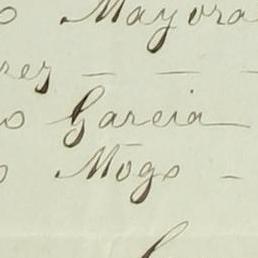 o Mayora
rez — — —
o Garcia —
o Mōgo —